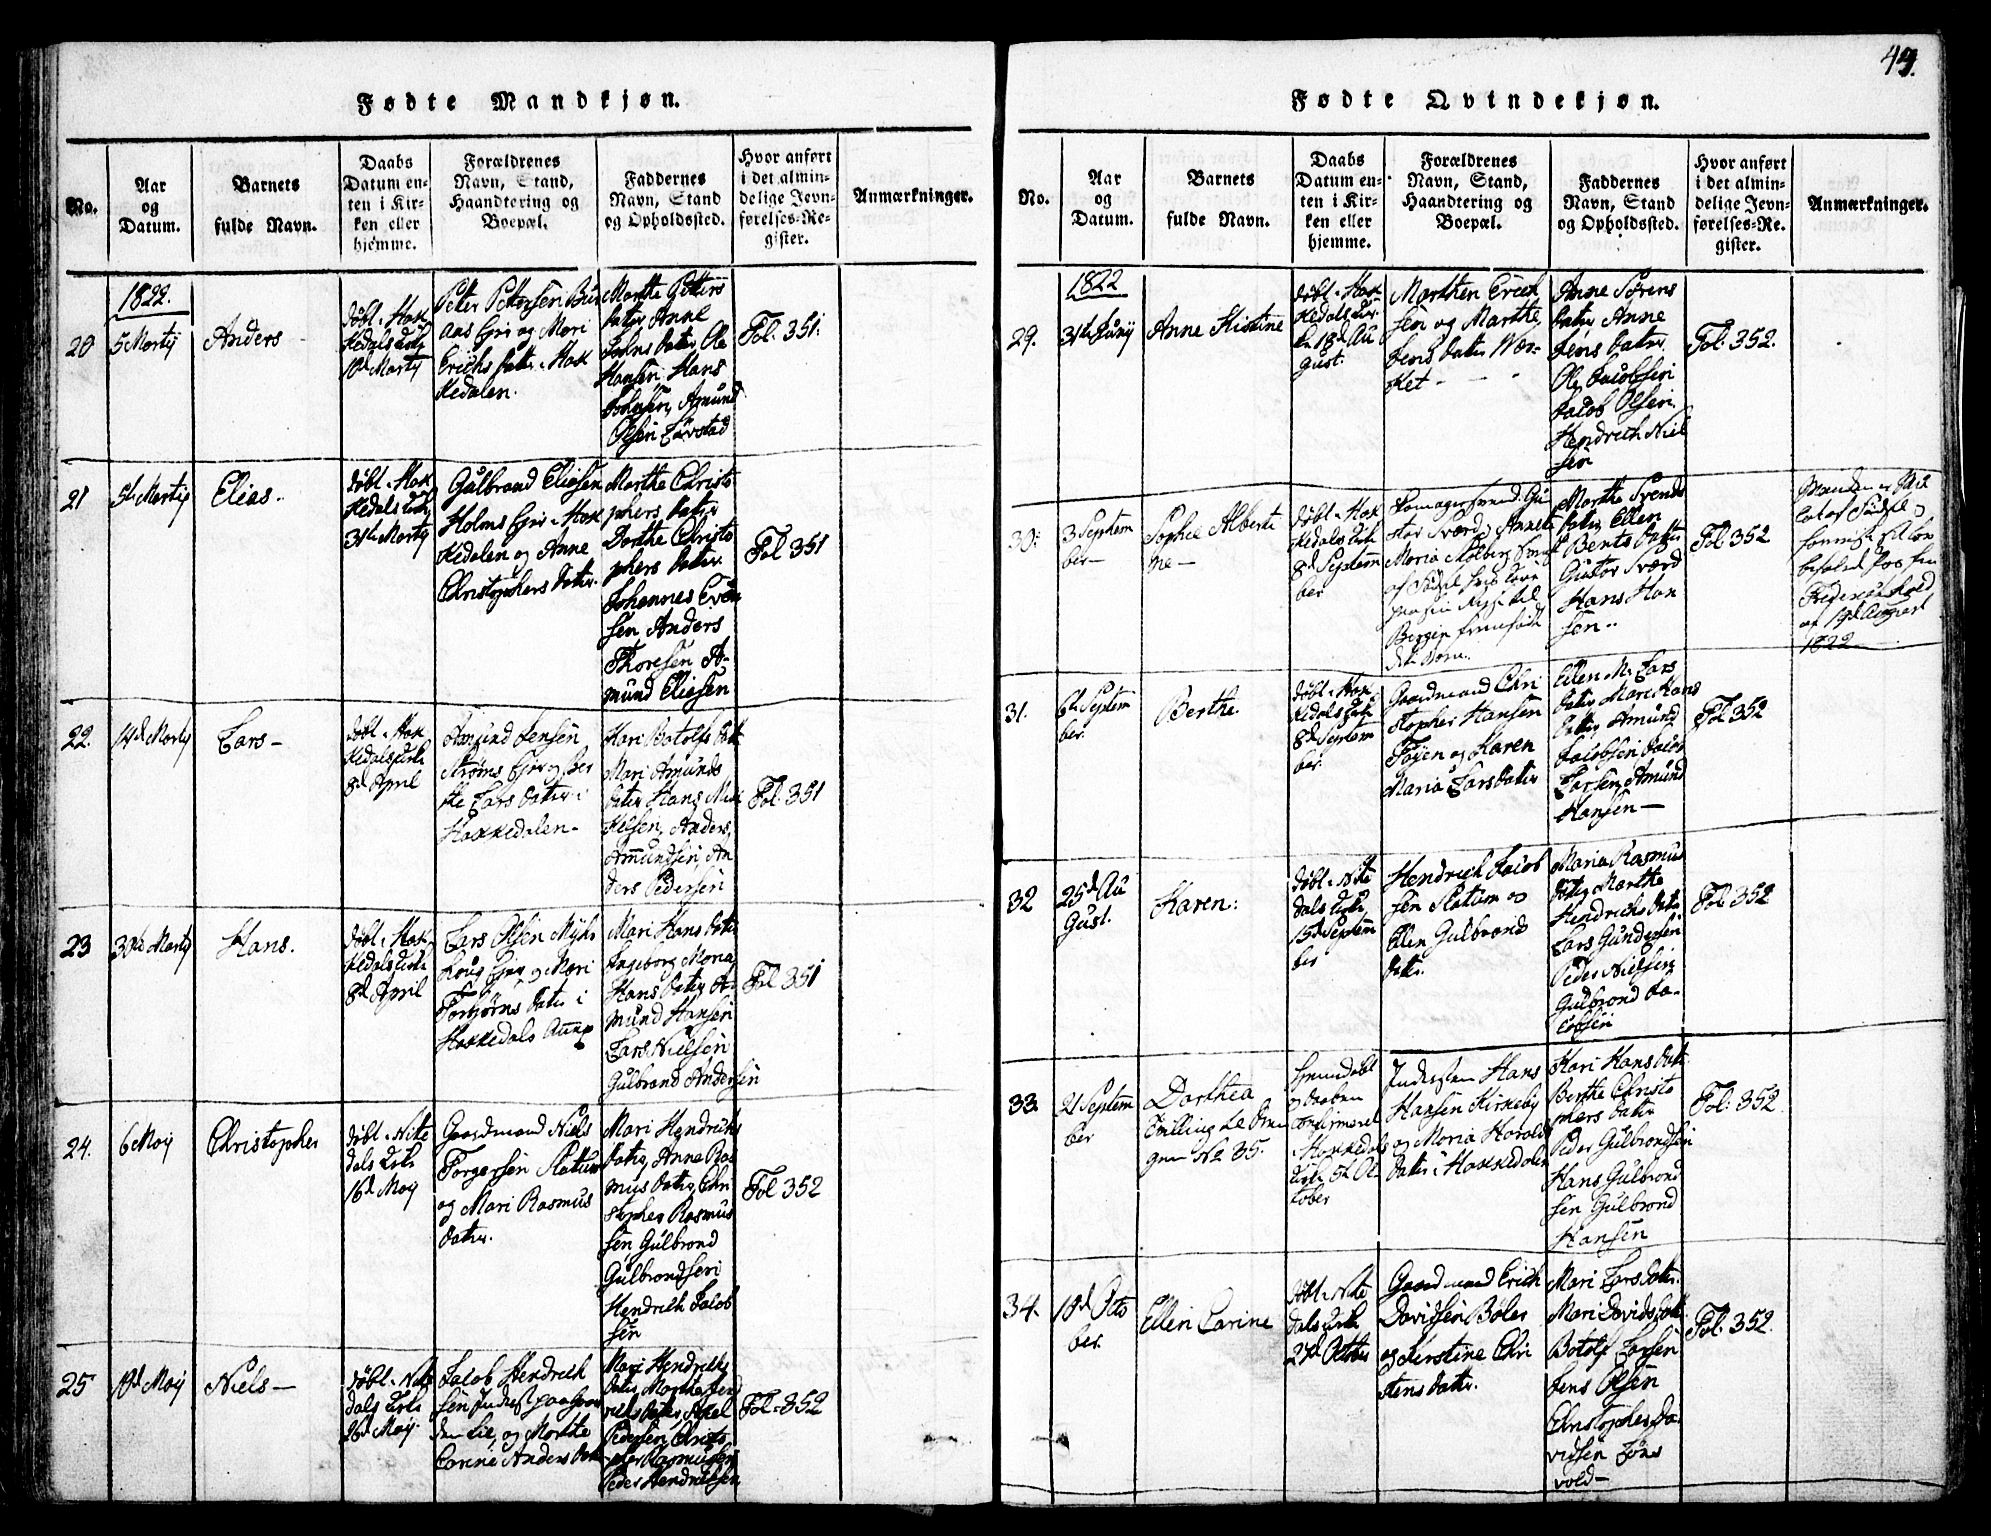 44.
Fødte Mandkjøn.
No.
Aar
og
Datum.
Barnets
fulde Navn.
Daabs
Datum en-
ten i Kir-
ken eller
hjemme.
Forældrenes
Navn, Stand,
Haandtering og
Boepæl.
Faddernes
Navn, Stand
og Opholdssted.
Hvor anført
i det almin-
delige Jevn-
førelses-Re-
gister.
Anmærkninger.
1822.
20
5 Martij
Anders
døbt i Hak
Kedals Kirke
10d Martij
Peter Pettersen
og Mari
Erichs datter i Hak
Kedalen.
Marthe Petters
datter Anne
Johns datter Ole
Hansen, Hans
Johnsen, Amund
Olsen
Fol. 351.
21
5te Martij
Elias.
døbt i Hak
Kedals Kirke
31te Martij
Gulbrand Eliasen
Holms Eier i Hak
Kedalen og Anne
Christophers datter.
Marthe Christo
phers datter
Dorthe Christo
phers datter
Johannes Even
sen Anders
Thoresen A-
mund Eliasen
Fol 351
22.
14d Martij
Lars –
døbt i Hak
Kedals Kirke
8d April
Amund Jensen
Strøms Eier og Ber
the Lars datter i
Hakkedalen –
Kari Botolfs datt
Mari Amunds
datter Hans Mik
Kelsen, Anders
Amundsen, An
ders Pedersen
Fol. 351
23
30te Martij
Hans.
døbt i Hak
Kedals Kirke
8d April
Lars Olsen
og Mari
Torbjørns datter i
Hakkedals
Mari Hans datter
Ingeborg Maria
Hans datter A-
mund Hansen
Lars Nielsen
Gulbrand Andersen
Fol 351
24.
6 Maij
Christopher
døbt i Nite
dals Kirke
16d Maij
Gaardmand Niels
Torgersen Slatum
og Mari Rasmus
datter.
Mari Hendrichs
datter, Anne Ras
mus datter, Chri
stopher Rasmus
sen, Gulbrand
Gulbrandsen
Hendrich Jacob
sen
Fol 352
25
10d Maij
Niels –
døbt i Nite
dals Kirke
26d Maij
Jacob Hendrich
sen
og Marthe
Carine Anders datt
Mari Hendrichs
datter, Marthe Hend
richs datter Axel
Pedersen, Christo
pher Rasmussen
Peder Hendrichsen
Fol. 352
Fødte Qvindekjøn.
No.
Aar
og
Datum.
Barnets
fulde Navn.
Daabs
Datum en-
ten i Kir-
ken eller
hjemme.
Forældrenes
Navn, Stand,
Haandtering og
Boepæl.
Faddernes
Navn, Stand
og Opholdssted.
Hvor anført
i det almin-
delige Jevn-
førelses-Re-
gister.
Anmærkninger.
1822
29.
Anne Kistine
døbt i Hak
Kedals Kir-
ke 18d Au
gust.
Marthen Erich
sen og Marthe
Jens datter Vær-
ket –
Anne Sørens
datter Anne
Jens datter,
Ole Jacobsen
Jacob Olsen
Hendrich Niel
sen
Fol: 352.
30.
3 Septem
ber –
Sophie Alberti
ne –
døbt i Hak
Kedals Kirke
8d Septem
ber
Gu
stav Sværd og Annete
Maria Stolberg
af
Bergen
Marthe Svends
datter, Ellen
Bents datter
Gustav Sværd
Hans Han
sen.
Fol: 352
Friderichshald
af 19d August
1822
31.
6te Septem
ber.
Berthe.
døbt i Hak
Kedals Kirke
8d Septem
ber.
Gaardmand Chri
stopher Hansen
Foyen og Karen
Maria Lars datter
Ellen M. Lars
datter Mari Hans
datter, Amund
Jacobsen Jacob
Larsen, Amund
Hansen –
Fol. 352
32
25d Au
gust.
Karen.
døbt i Nite
dals Kirke
15d Septem
ber
Hendrich Jacob
sen Slatum og
Ellen Gulbrands
datter.
Maria Rasmus
datter Marthe
Hendrichs datter
Lars Gundersen
Peder Nielsen
Gulbrand Ja-
cobsen
Fol 352
33.
21 Septem
ber
Dorthea
Tvilling
No 35.
hjemmedøbt
og Daaben
confirmeret
i Hakkedals
Kirke 5te Oc-
tober
Inderst Hans
Hansen Kirkeby
og Maria Harolds
datter i Hakkedalen
Kari Hans datter
Berthe Christo
phers datter
Peder Gulbrandsen
Hans Gulbrand
sen Gulbrand
Hansen
Fol: 352
34.
10d Octo
ber.
Ellen Carine
døbt i Nite
dals Kirke
27d October
Gaardmand Erich
Davidsen Bøler
og Kirstine Chri
stens datter.
Mari Lars datter.
Mari Davids datt
Botolf Larsen
Jens Olsen
Christopher Da
vidsen Løns
vold –
Fol: 352.